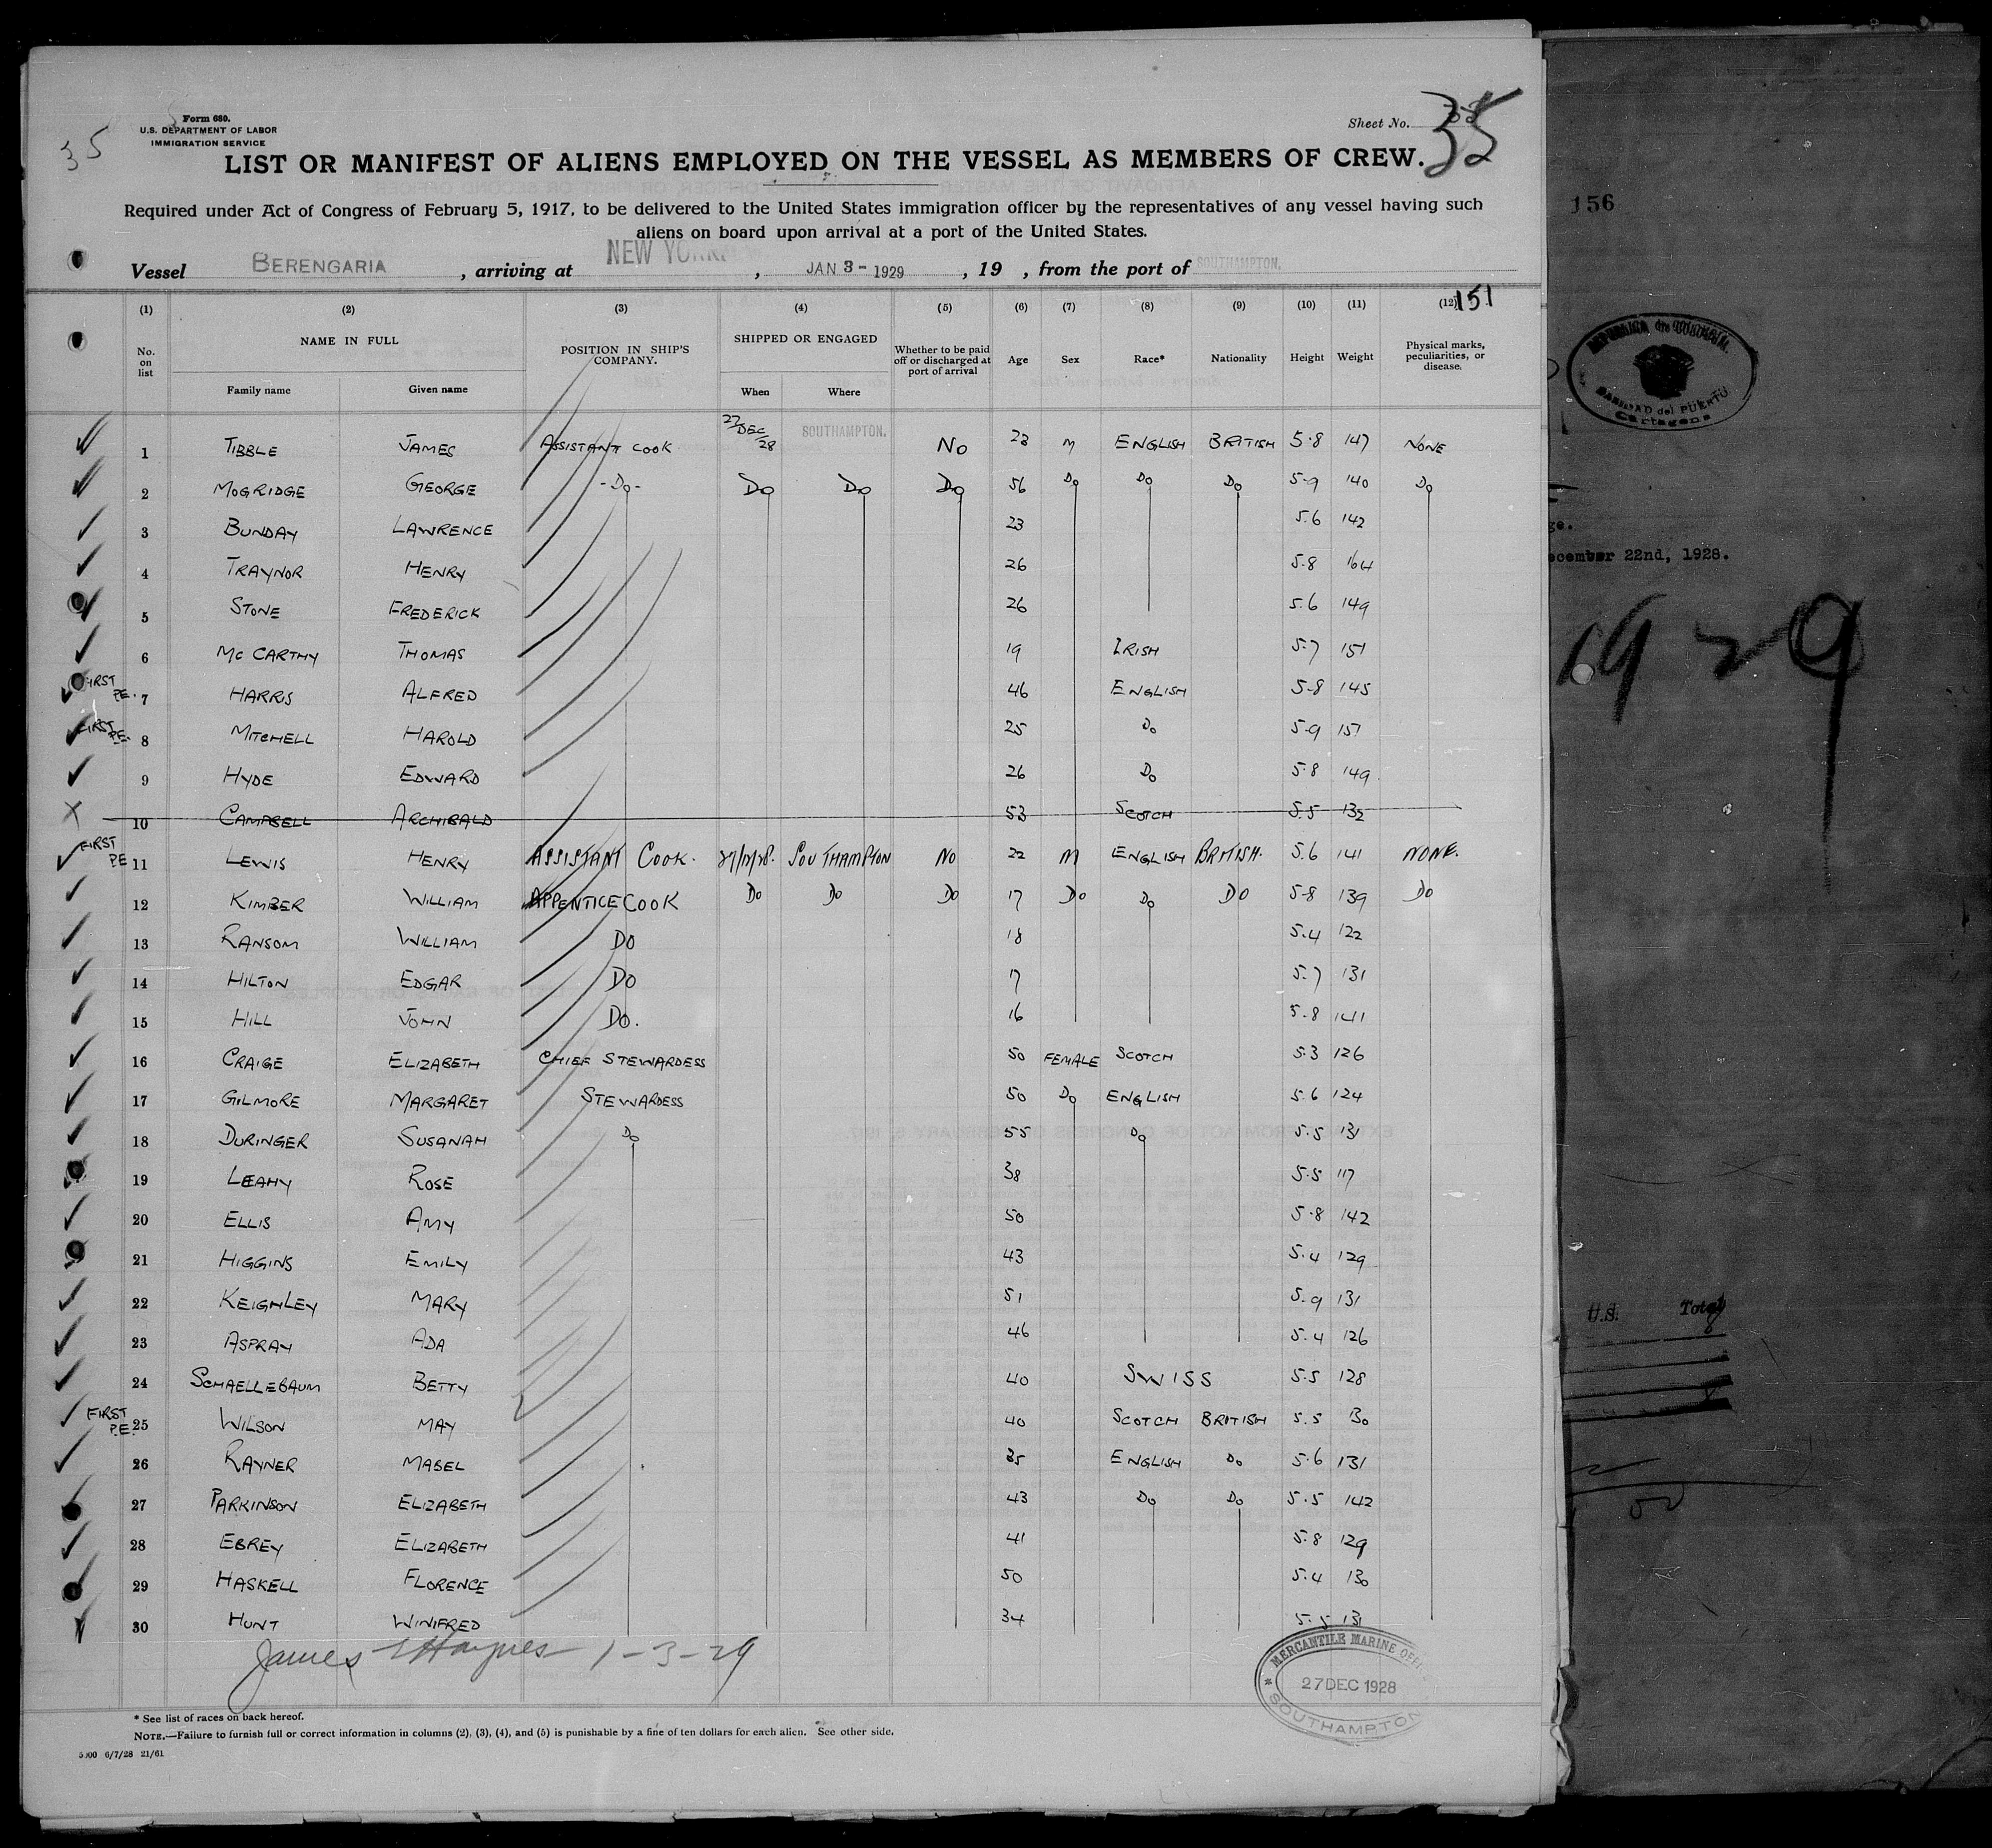 Form 680.
U.S. DEPARTMENT OF LABOR
IMMIGRATION SERVICE
35
Sheet No. 35
LIST OR MANIFEST OF ALIENS EMPLOYED ON THE VESSEL AS MEMBERS OF CREW.
Required under Act of Congress of February 5, 1917, to be delivered to the United States immigration officer by the representatives of any vessel having such
aliens on board upon arrival at a port of the United States.
Vessel BERENGARIA, arriving at NEW YORK, JAN 3 - 1929, 19 , from the port of SOUTHAMPTON.
(1) (2) (3) (4) (5) (6) (7) (8) (9) (10) (11) (12) 151
No. on list NAME IN FULL Family name Given name POSITION IN SHIP'S COMPANY. SHIPPED OR ENGAGED When Where Whether to be paid off or discharged at port of arrival Age Sex Race* Nationality Height Weight Physical marks, peculiarities, or disease.
1 TIBBLE JAMES ASSISTANT COOK 27/DEC/28 SOUTHAMPTON. NO 23 M ENGLISH BRITISH 5.8 147 NONE
2 MOGRIDGE GEORGE -Do- Do Do Do 56 Do Do Do 5-9 140 Do
3 BUNDAY LAWRENCE 23 5.6 142
4 TRAYNOR HENRY 26 5.8 164
5 STONE FREDERICK 26 5.6 149
6 MC CARTHY THOMAS 19 IRISH 5-7 151
FIRST P.E. 7 HARRIS ALFRED 46 ENGLISH 5-8 145
FIRST P.E. 8 MITCHELL HAROLD 25 Do 5-9 151
9 HYDE EDWARD 26 Do 5.8 149
X 10 CAMPBELL ARCHIBALD 53 SCOTCH 5.5 132
FIRST P.E 11 LEWIS HENRY ASSISTANT COOK. 27/12/28. SOUTHAMPTON NO 22 M ENGLISH BRITISH. 5.6 141 NONE.
12 KIMBER WILLIAM APPENTICE COOK DO DO DO 17 DO Do DO 5-8 139 DO
13 RANSOM WILLIAM DO 18 5.4 122
14 HILTON EDGAR DO 17 5.7 131
15 HILL JOHN DO. 16 5.8 141
16 CRAIGE ELIZABETH CHIEF STEWARDESS 50 FEMALE SCOTCH 5.3 126
17 GILMORE MARGARET STEWARDESS 50 Do ENGLISH 5.6 124
18 DURINGER SUSANAH Do 55 Do 5.5 131
19 LEAHY ROSE 38 5.5 117
20 ELLIS AMY 50 5.8 142
21 HIGGINS EMILY 43 5.4 129
22 KEIGHLEY MARY 51 5.9 131
23 ASPRAY ADA 46 5.4 126
24 SCHAELLEBAUM BETTY 40 SWISS 5.5 128
FIRST P.E. 25 WILSON MAY 40 SCOTCH BRITISH 5.5 130
26 RAYNER MABEL 35 ENGLISH Do 5.6 131
27 PARKINSON ELIZABETH 43 Do Do 5.5 142
28 EBREY ELIZABETH 41 5.8 129
29 HASKELL FLORENCE 50 5.4 130
30 HUNT WINIFRED 34 5.5 131
James Haynes 1-3-29
MERCANTILE MARINE OFFI
27 DEC 1928
SOUTHAMPTON
* See list of races on back hereof.
NOTE.—Failure to furnish full or correct information in columns (2), (3), (4), and (5) is punishable by a fine of ten dollars for each alien. See other side.
5000 6/7/28 21/61
156
SANIDAD del PUERTO
Cartagena
ge.
ecember 22nd, 1928.
1929
U.S. Total